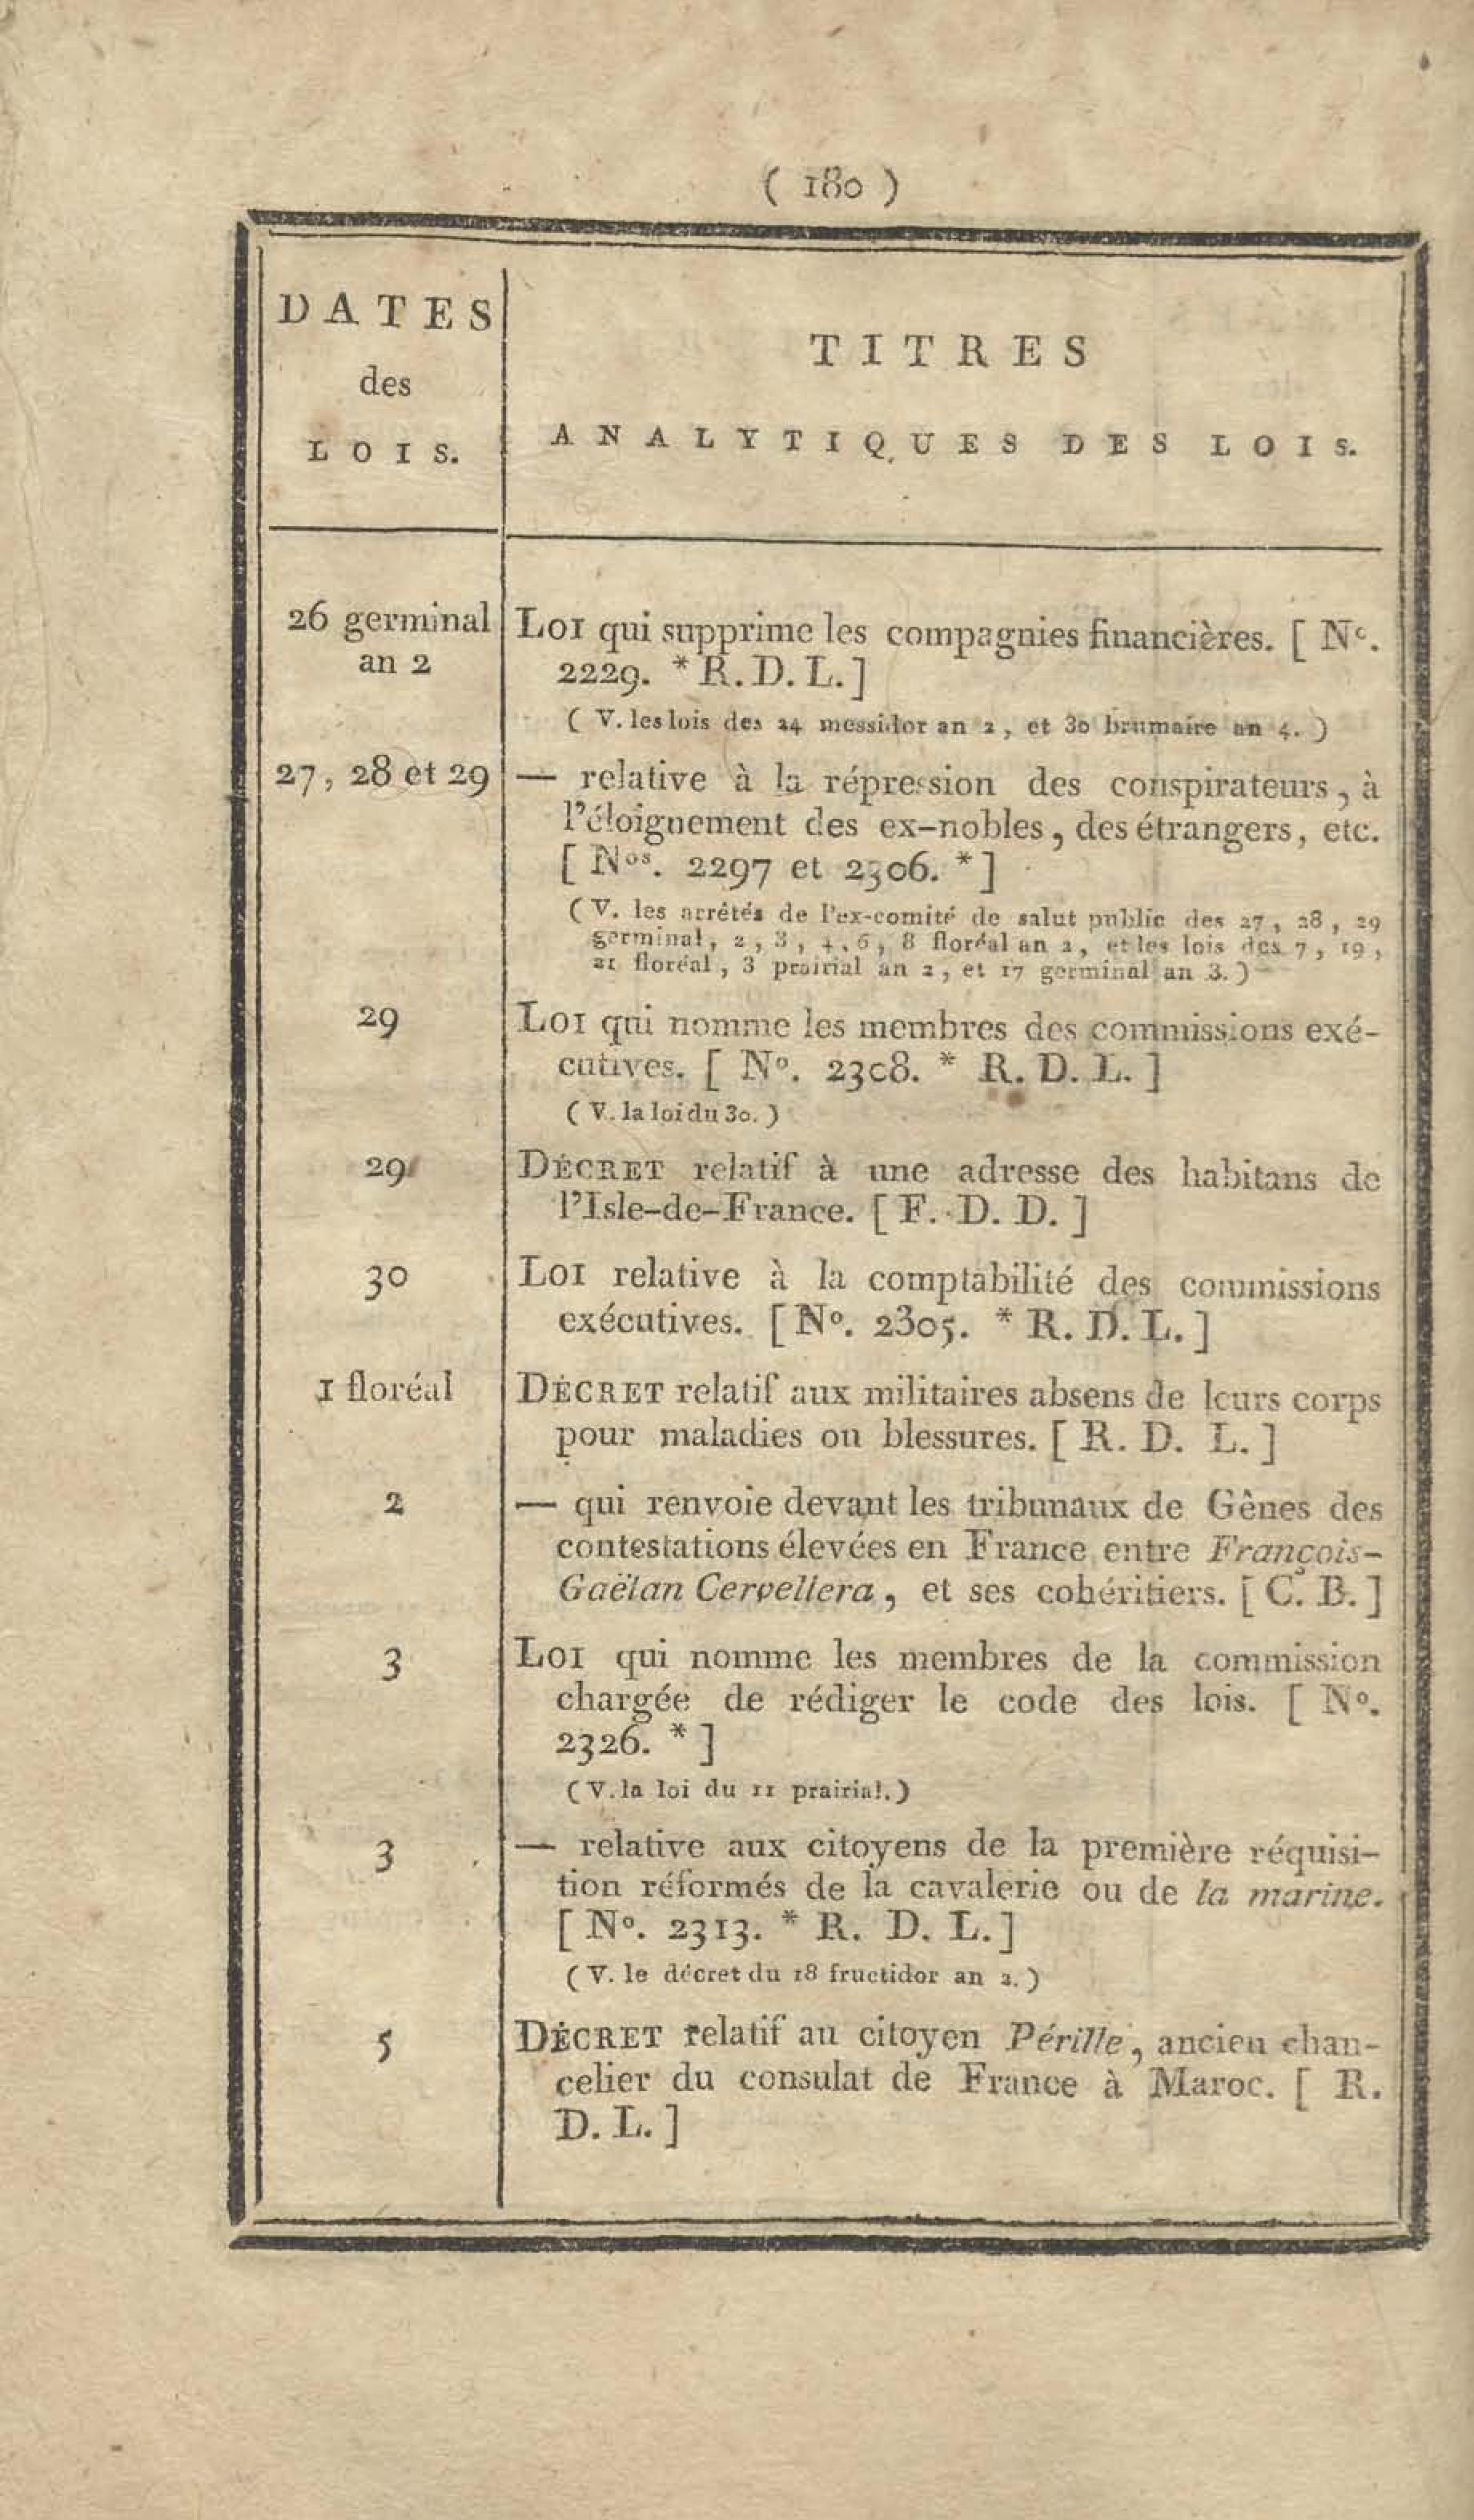 ( 180 )
DATES
des
LOIS.
TITRES
ANALYTIQUES DES LOIS.
26 germinal
an 2
LOI qui supprime les compagnies financières. [ No.
2229. * R. D. L. ]
( V. les lois des 24 messidor an 2, et 30 brumaire an 4. )
27, 28 et 29
— relative à la répression des conspirateurs, à
l'éloignement des ex-nobles, des étrangers, etc.
[ Nos. 2297 et 2306. * ]
( V. les arrêtés de l'ex-comité de salut public des 27, 28, 29
germinal, 2, 3, 4, 6, 8 floréal an 2, et les lois des 7, 19,
21 floréal, 3 prairial an 2, et 17 germinal an 3. )
29
LOI qui nomme les membres des commissions exé-
cutives. [ No. 2308. * R. D. L. ]
( V. la loi du 30. )
29
DÉCRET relatif à une adresse des habitans de
l'Isle-de-France. [ F. D. D. ]
30
LOI relative à la comptabilité des commissions
exécutives. [ No. 2305. * R. D. L. ]
1 floréal
DÉCRET relatif aux militaires absens de leurs corps
pour maladies ou blessures. [ R. D. L. ]
2
— qui renvoie devant les tribunaux de Gênes des
contestations élevées en France entre François-
Gaëtan Cervellera, et ses cohéritiers. [ C. B. ]
3
LOI qui nomme les membres de la commission
chargée de rédiger le code des lois. [ No.
2326. * ]
( V. la loi du 11 prairial. )
3
— relative aux citoyens de la première réquisi-
tion réformés de la cavalerie ou de la marine.
[ No. 2313. * R. D. L. ]
( V. le décret du 18 fructidor an 2. )
5
DÉCRET relatif au citoyen Pérille, ancien chan-
celier du consulat de France à Maroc. [ R.
D. L. ]